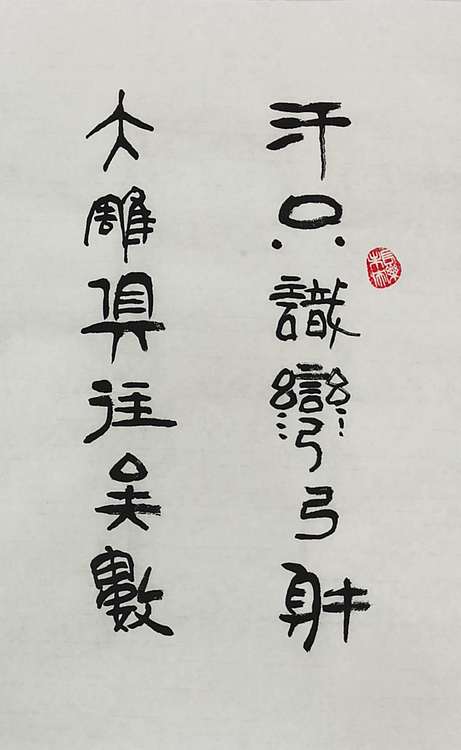 汗只識彎弓射
大雕俱往矣數